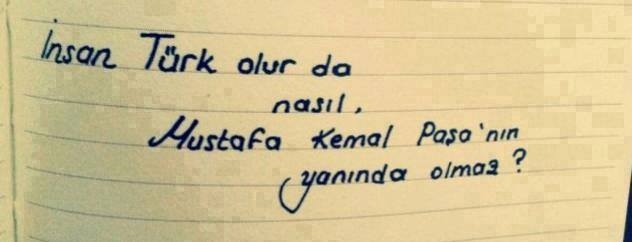 İnsan Türk olur da
nasıl,
Mustafa Kemal Paşa'nın
yanında olmaz?